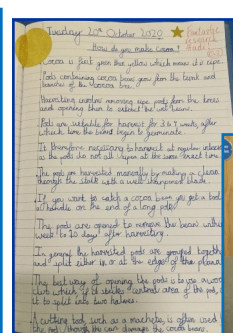 Tuesday 20th October 2020
Fantastic
How do you make cocoa?
Cocoa is first green then yellow which means it is ripe.
Pods containing cocoa bean grow from the trunk and
branches of the cocoa tree.
Harvesting involves removing ripe pods from the trees
and opening them to extract the wet beans.
Pods are suitable for harvest for 3 to 4 weeks, after
which time the beans begin to germinate.
It is therefore necessary to harvest at regular intervals
as the pods do not all ripen at the same exact time.
The pods are harvested manually by making a clean
through the stalk with a well sharpened blade.
If you want to catch a cocoa bean you get a tool
a handle on the end of a long pole.
The pods are opened to remove the beans within
week to 10 days after harvesting.
In general the harvested pods are grouped together
and split either in or at the edge of the
The best way of opening the pods is to use a wooden
club which if it strikes central area of the pod,
it to split into two halves.
A cutting tool, such as a machete, is often used
the pod though this can damage the cocoa beans.